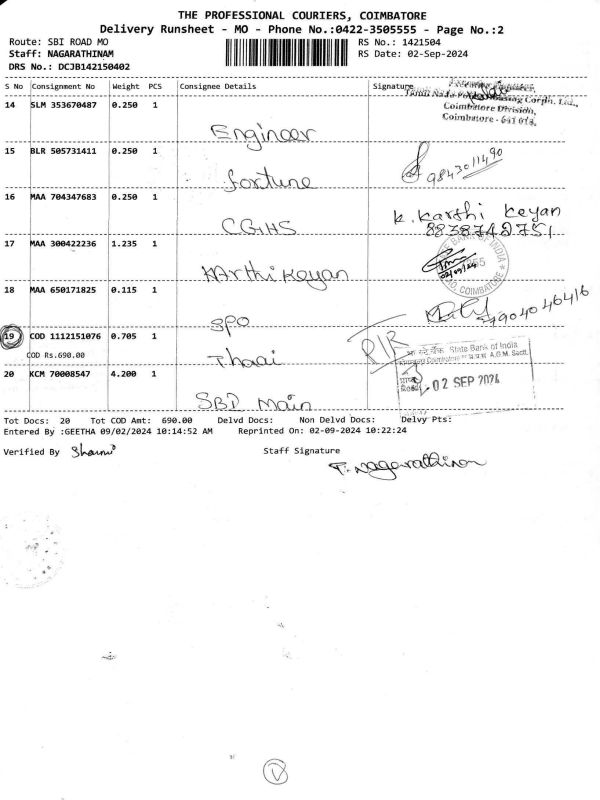 THE PROFESSIONAL COURIERS, COIMBATORE
Delivery Runsheet - MO - Phone No.:0422-3505555 - Page No.:2
Route: SBI ROAD MO RS No.: 1421504
Staff: NAGARATHINAM RS Date: 02-Sep-2024
DRS No.: DCJB142150402
S No Consignment No Weight PCS Consignee Details Signature
Coimbatore Division,
Coimbatore - 641 018.
14 SLM 353670487 0.250 1
Engineer
15 BLR 505731411 0.250 1
fortune 9843011490
16 MAA 704347683 0.250 1
CGHS K. Karthi Keyan
8838742751
17 MAA 300422236 1.235 1
Karthikeyan 02/09/24
COIMBATORE
18 MAA 650171825 0.115 1
SPO 7904046416
19 COD 1112151076 0.705 1 PIR
COD Rs.690.00
Thaai
State Bank of India
A.G.M. Sectt.
02 SEP 2024
20 KCM 70008547 4.200 1
SBI Main
Tot Docs: 20 Tot COD Amt: 690.00 Delvd Docs: Non Delvd Docs: Delvy Pts:
Entered By :GEETHA 09/02/2024 10:14:52 AM Reprinted On: 02-09-2024 10:22:24
Verified By Staff Signature
T. Nagarathinam